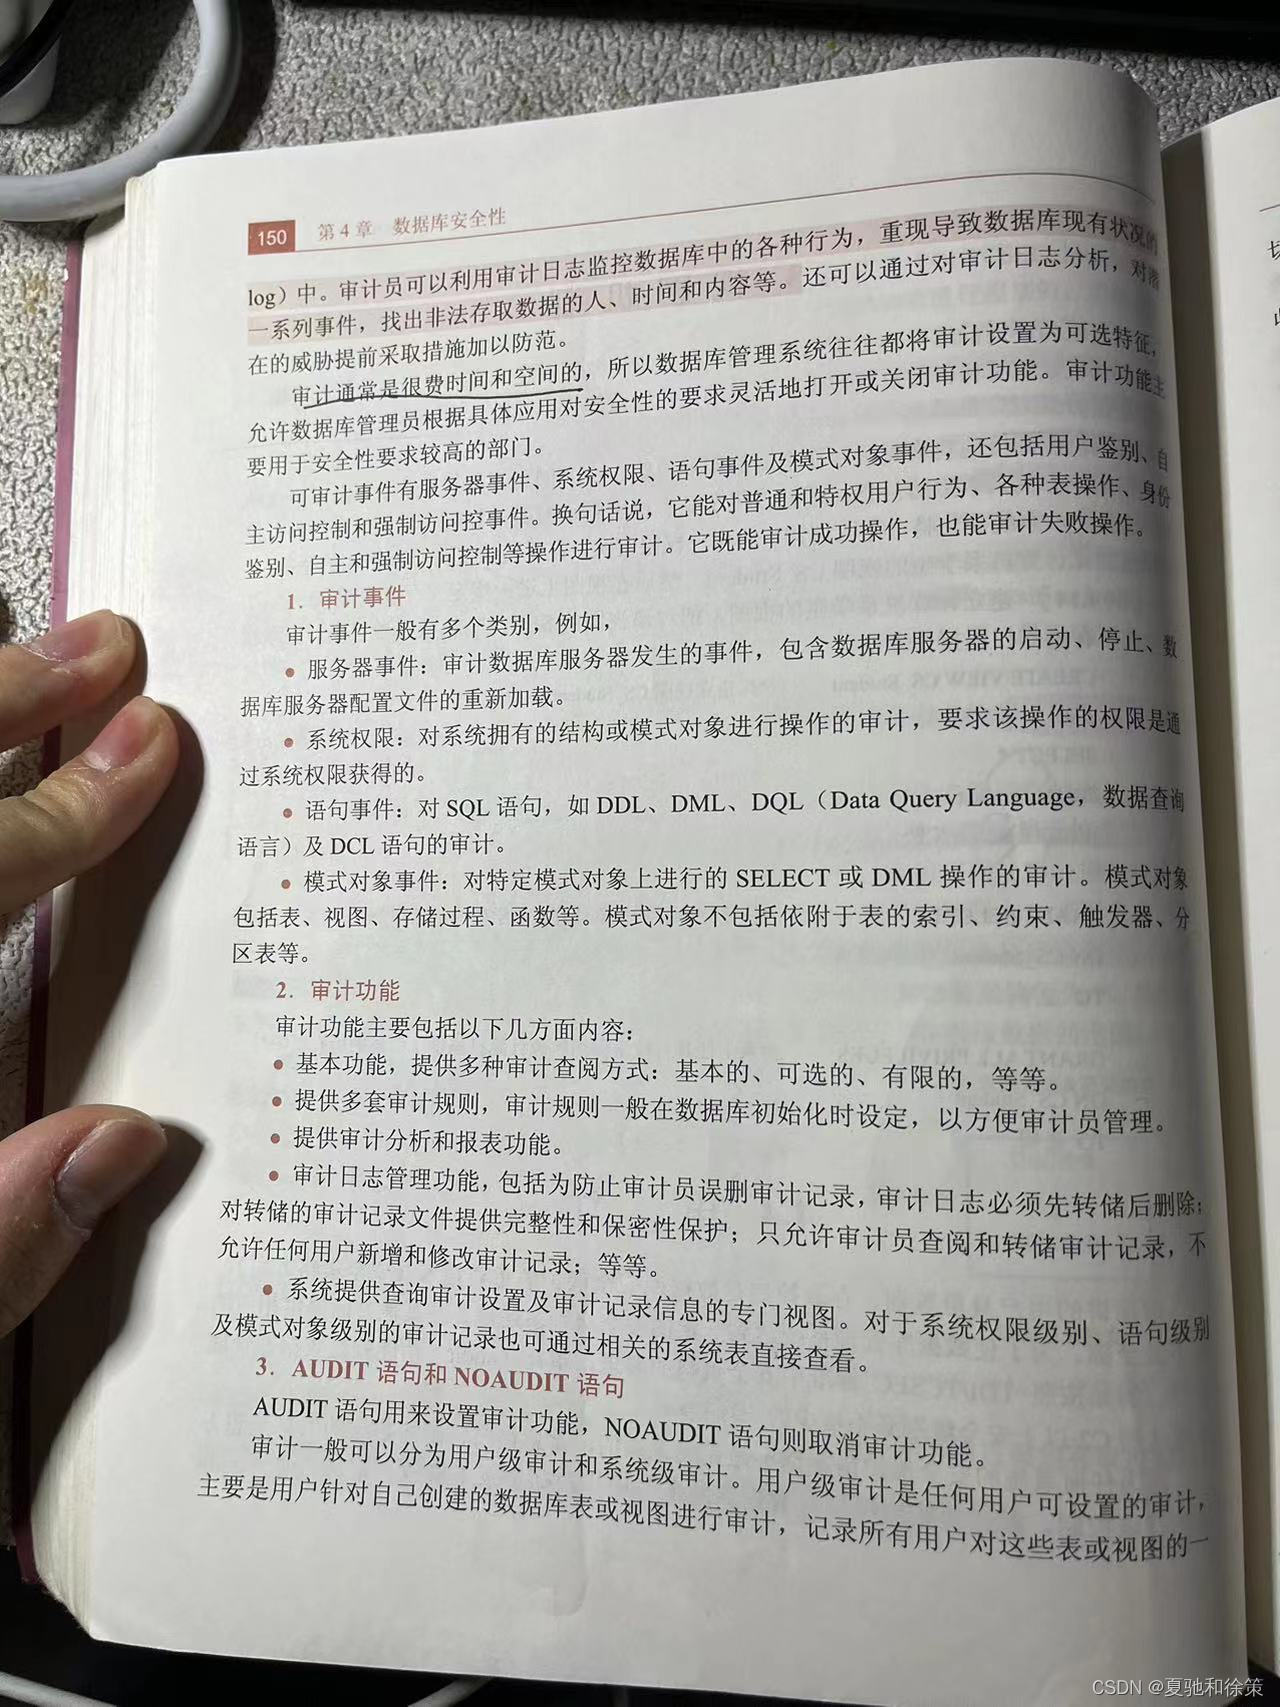 150 第4章 数据库安全性
log）中。审计员可以利用审计日志监控数据库中的各种行为，重现导致数据库现有状况的
一系列事件，找出非法存取数据的人、时间和内容等。还可以通过对审计日志分析，对潜
在的威胁提前采取措施加以防范。
审计通常是很费时间和空间的，所以数据库管理系统往往都将审计设置为可选特征，
允许数据库管理员根据具体应用对安全性的要求灵活地打开或关闭审计功能。审计功能主
要用于安全性要求较高的部门。
可审计事件有服务器事件、系统权限、语句事件及模式对象事件，还包括用户鉴别、自
主访问控制和强制访问控事件。换句话说，它能对普通和特权用户行为、各种表操作、身份
鉴别、自主和强制访问控制等操作进行审计。它既能审计成功操作，也能审计失败操作。
1．审计事件
审计事件一般有多个类别，例如，
• 服务器事件：审计数据库服务器发生的事件，包含数据库服务器的启动、停止、数
据库服务器配置文件的重新加载。
• 系统权限：对系统拥有的结构或模式对象进行操作的审计，要求该操作的权限是通
过系统权限获得的。
• 语句事件：对 SQL 语句，如 DDL、DML、DQL（Data Query Language，数据查询
语言）及 DCL 语句的审计。
• 模式对象事件：对特定模式对象上进行的 SELECT 或 DML 操作的审计。模式对象
包括表、视图、存储过程、函数等。模式对象不包括依附于表的索引、约束、触发器、分
区表等。
2．审计功能
审计功能主要包括以下几方面内容：
• 基本功能，提供多种审计查阅方式：基本的、可选的、有限的，等等。
• 提供多套审计规则，审计规则一般在数据库初始化时设定，以方便审计员管理。
• 提供审计分析和报表功能。
• 审计日志管理功能，包括为防止审计员误删审计记录，审计日志必须先转储后删除；
对转储的审计记录文件提供完整性和保密性保护；只允许审计员查阅和转储审计记录，不
允许任何用户新增和修改审计记录；等等。
• 系统提供查询审计设置及审计记录信息的专门视图。对于系统权限级别、语句级别
及模式对象级别的审计记录也可通过相关的系统表直接查看。
3．AUDIT 语句和 NOAUDIT 语句
AUDIT 语句用来设置审计功能，NOAUDIT 语句则取消审计功能。
审计一般可以分为用户级审计和系统级审计。用户级审计是任何用户可设置的审计，
主要是用户针对自己创建的数据库表或视图进行审计，记录所有用户对这些表或视图的一
CSDN @夏驰和徐策